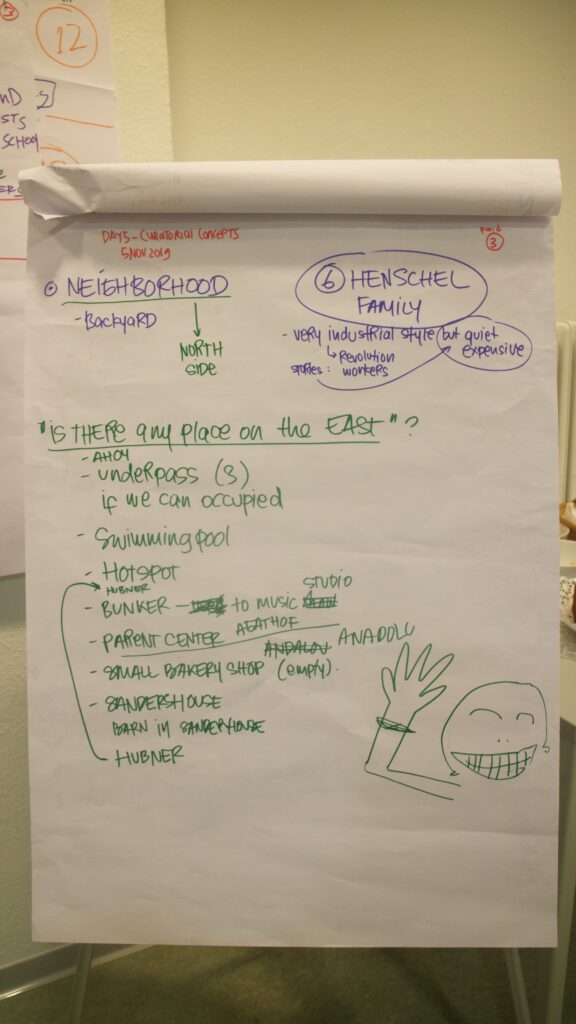 12
ND
STS
SCHOOL
DAY5 - CURATORIAL CONCEPTS
5 NOV 2019
3
NEIGHBORHOOD
- BACKYARD
NORTH
SIDE
6 HENSCHEL
FAMILY
- very industrial style but quiet
expensive
Revolution
stories: workers
"IS THERE any place on the EAST"?
- AHOY
- underpass (3)
if we can occupied
- Swimmingpool
- HOTSPOT
HUBNER
STUDIO
- BUNKER — to MUSIC
- PARENT CENTER AGATHOF
ANDALOU ANADOLU
- SMALL BAKERY SHOP (empty).
- SANDERSHOUSE
BARN in SANDERHOUSE
- HUBNER